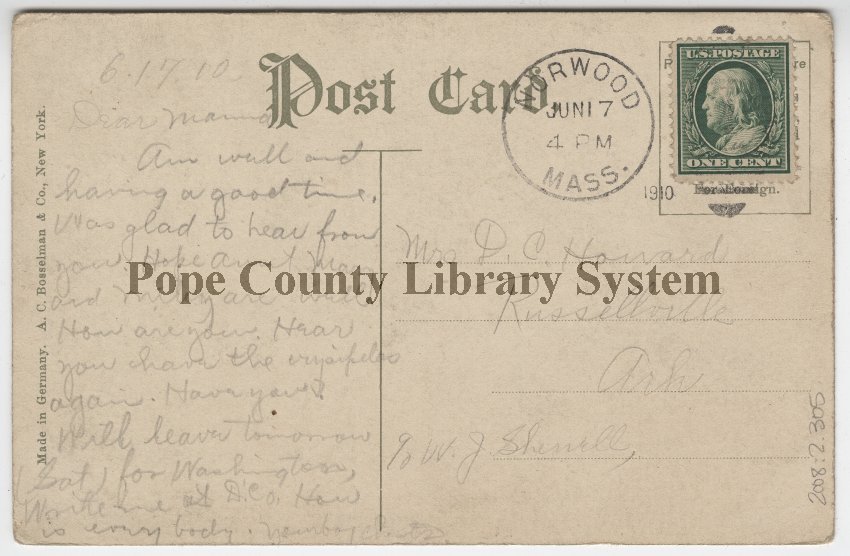 6.17.10
Post Card
Dear Mama
Am well and
having a good time.
Was glad to hear from
you. Hope Aunt Mary
and are well
How are you. Hear
you have the erysipelas
again. Have you?
Will leave tomorrow
(Sat) for Washington,
Write me at D.C. How
is every body.
Made in Germany. A. C. Bosselman & Co., New York.
NORWOOD
JUN 17
4 PM
MASS.
1910
U.S. POSTAGE
ONE CENT
For Foreign.
Pope County Library System
Mrs D. C. Howard
Russellville
Ark
c/o W. J. Sherrill,
2008.2.305